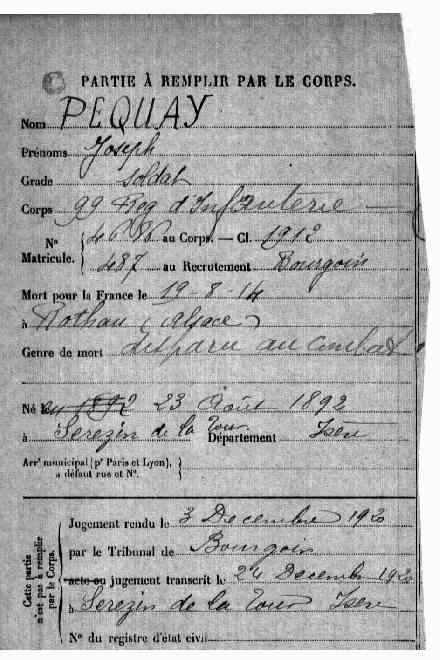 PARTIE À REMPLIR PAR LE CORPS.
Nom PEQUAY
Prénoms Joseph
Grade soldat
Corps 99 Reg d'Infanterie
Nº Matricule. au Corps. — Cl. 1912
487 au Recrutement Bourgoin
Mort pour la France le 19-8-14
à Rothau (Alsace)
Genre de mort disparu au combat
Né le en 1892 23 Août 1892
à Serezin de la Tour Département Isère
Arrt municipal (pr Paris et Lyon), à défaut rue et Nº.
Cette partie n'est pas à remplir par le Corps.
Jugement rendu le 3 Decembre 1920
par le Tribunal de Bourgoin
acte ou jugement transcrit le 24 Decembre 1920
à Serezin de la Tour Isère
Nº du registre d'état civil